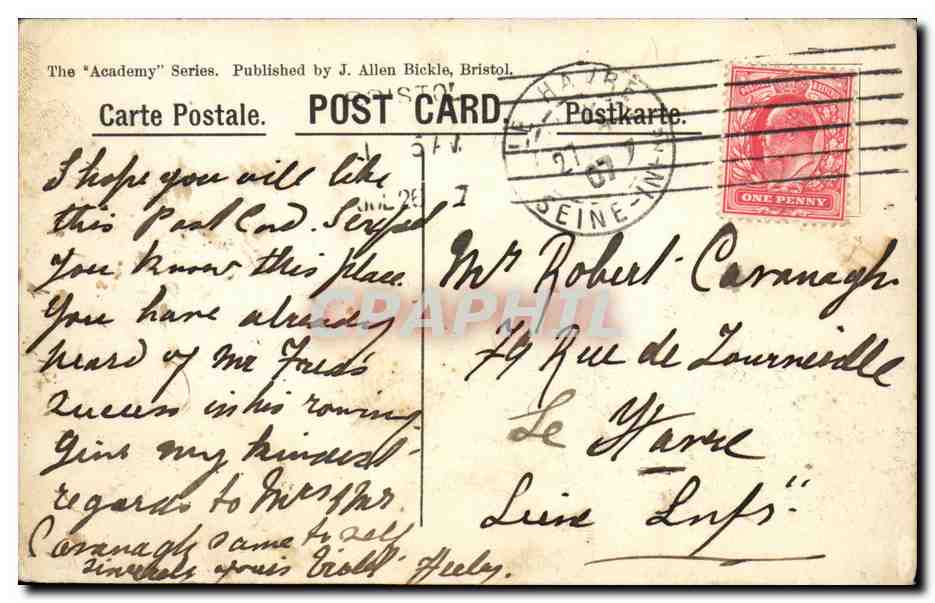 The "Academy" Series. Published by J. Allen Bickle, Bristol.
Carte Postale. POST CARD. Postkarte.
BRISTOL
LE HAVRE
27 7
07
SEINE-INF
ONE PENNY
I hope you will like
this Post Card.
you know this place
You have already
heard of Mr Fred's
success in his rowing
Give my kindest
regards to Mrs & Mr
Cavanagh same to self
sincerely yours Violet Heeley.
Mr Robert Cavanagh
79 Rue de Tourneville
Le Havre
Seine Infr
CPAPHIL